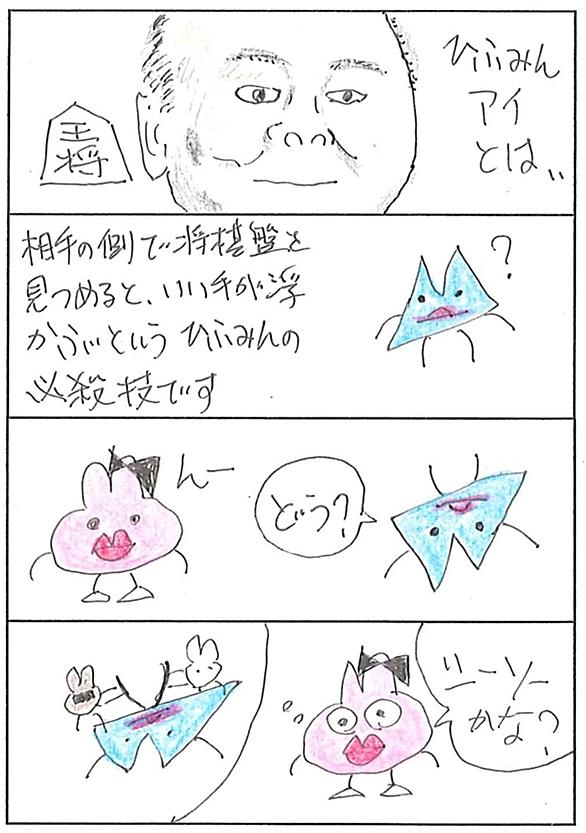 ひふみん
アイ
とは、、
王
将
相手の側で将棋盤を
見つめると、いい手が浮
かぶという ひふみんの
必殺技です
?
んー
どう?
リーソー
かな?